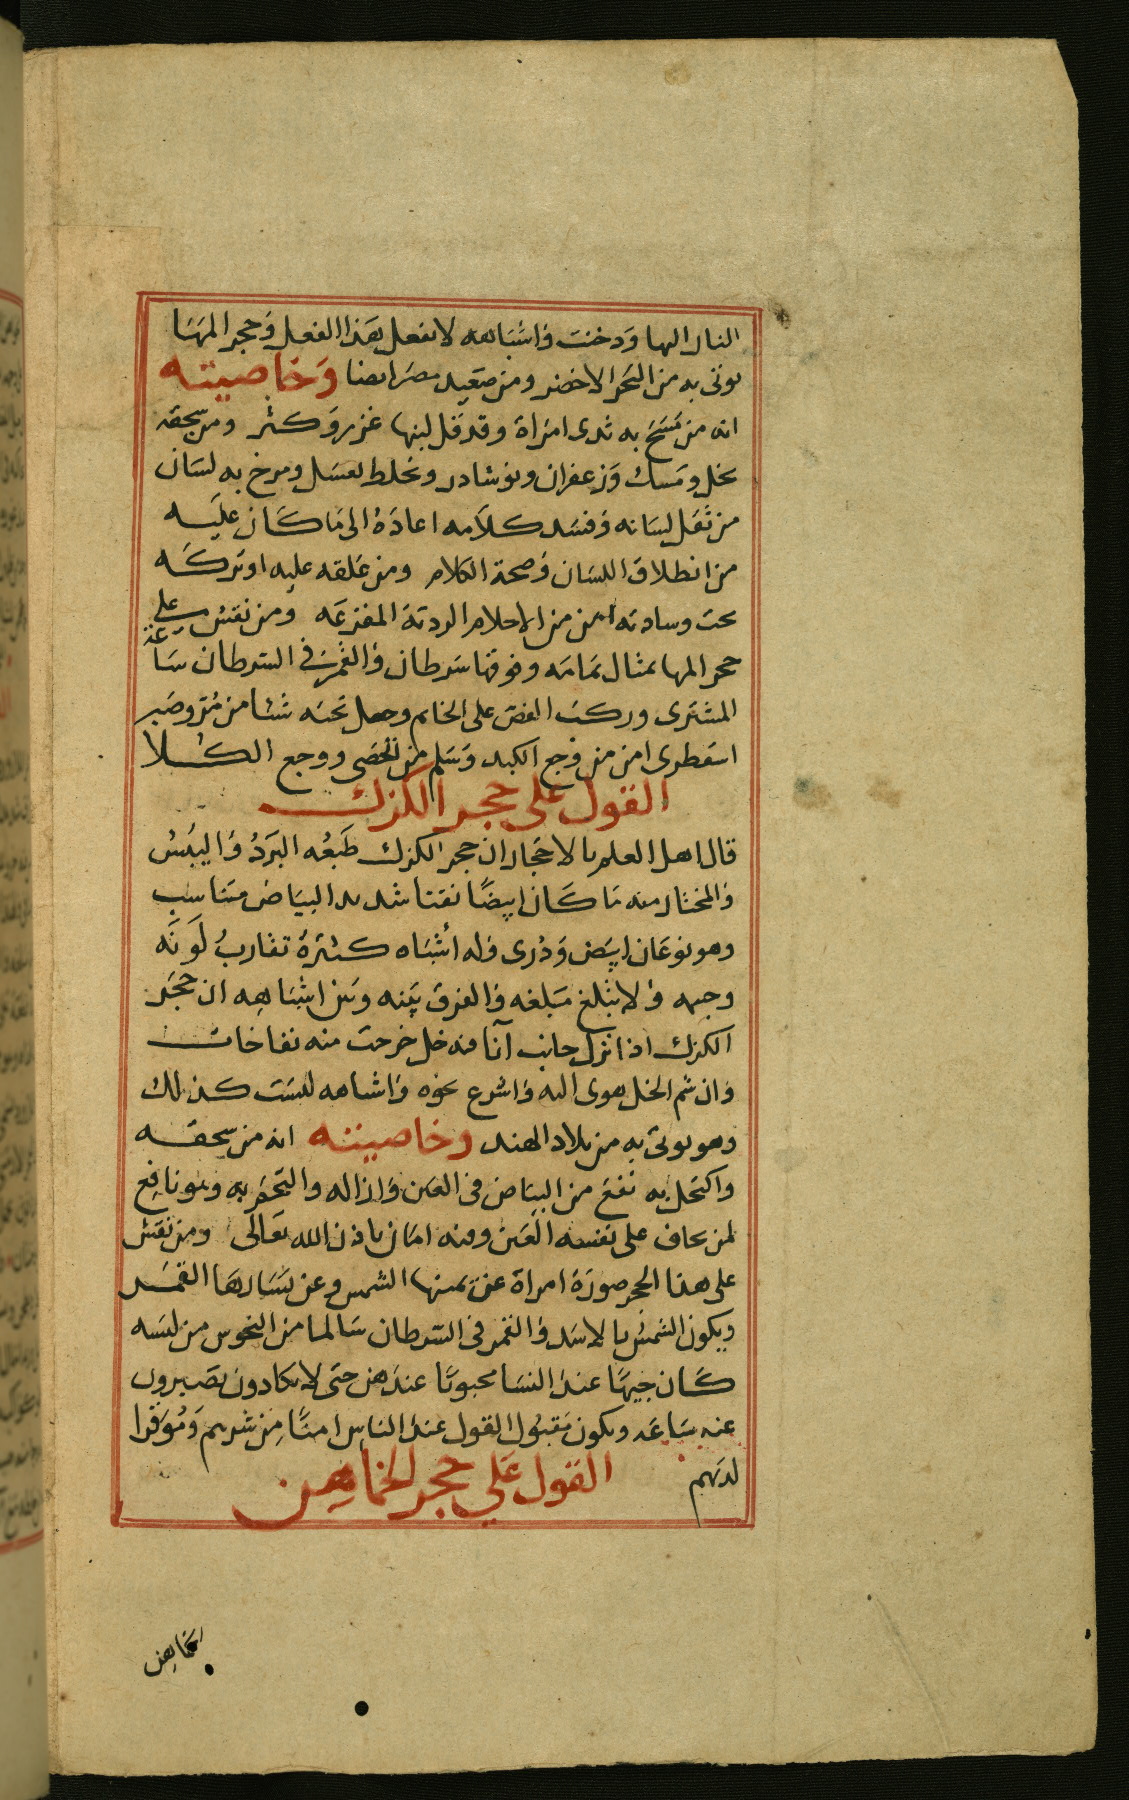 النار اليها ودخنت واشباهه لا تفعل هذا الفعل وحجر المها
يوتى به من البحر الاخضر ومن صعيد مصر ايضا وخاصيته
انه من مسح به ثدى امراة وقد قل لبنها غزر وكثر ومن سحقه
بخل ومسك وزعفران ونوشادر وخلط بعسل ومرخ به لسان
من ثقل لسانه وفسد كلامه اعاده الى ما كان عليه
من انطلاق اللسان وصحة الكلام ومن علقه عليه او تركه
تحت وسادته امن من الاحلام الردية المفزعه ومن نقش على
حجر المها تمثال يمامه وفوقها سرطان والقمر فى السرطان ساعة
المشترى وركب الفص على الخاتم وجعل تحته شيئا من مر وصبر
اسقطرى امن من وجع الكبد وسلم من الحصى ووجع الكلا
القول على حجر الكزك
قال اهل العلم بالاحجار ان حجر الكزك طبعه البرد واليبس
والمختار منه ما كان ابيضا نقيا شديد البياض متناسب
وهو نوعان ابيض ودرى وله أشباه كثيرة تقارب لونه
وجسمه ولا يبلغ مبلغه والفرق بينه وبين اشباهه ان حجر
الكزك اذا نزل جانب آنا فيه خل خرجت منه نفاخات
وان شم الخل هوى اليه واسرع نحوه واشباهه ليست كذلك
وهو يوتى به من بلاد الهند وخاصيته انه من سحقه
واكتحل به نفع من البياض فى العين وازاله والتختم به وهو نافع
لمن يخاف على نفسه العين وفيه امان باذن الله تعالى ومن نقش
على هذا الحجر صورة امراة عن يمينها الشمس وعن يسارها القمر
ويكون الشمس بالاسد والقمر فى السرطان سالما من النحوس من لبسه
كان وجيها عند النسا محبوبا عندهن حتى لا يكادون يصبرون
عنه ساعه ويكون مقبول القول عند الناس امنا من شرهم وموقرا
لديهم القول على حجر الخماهن
الخماهن